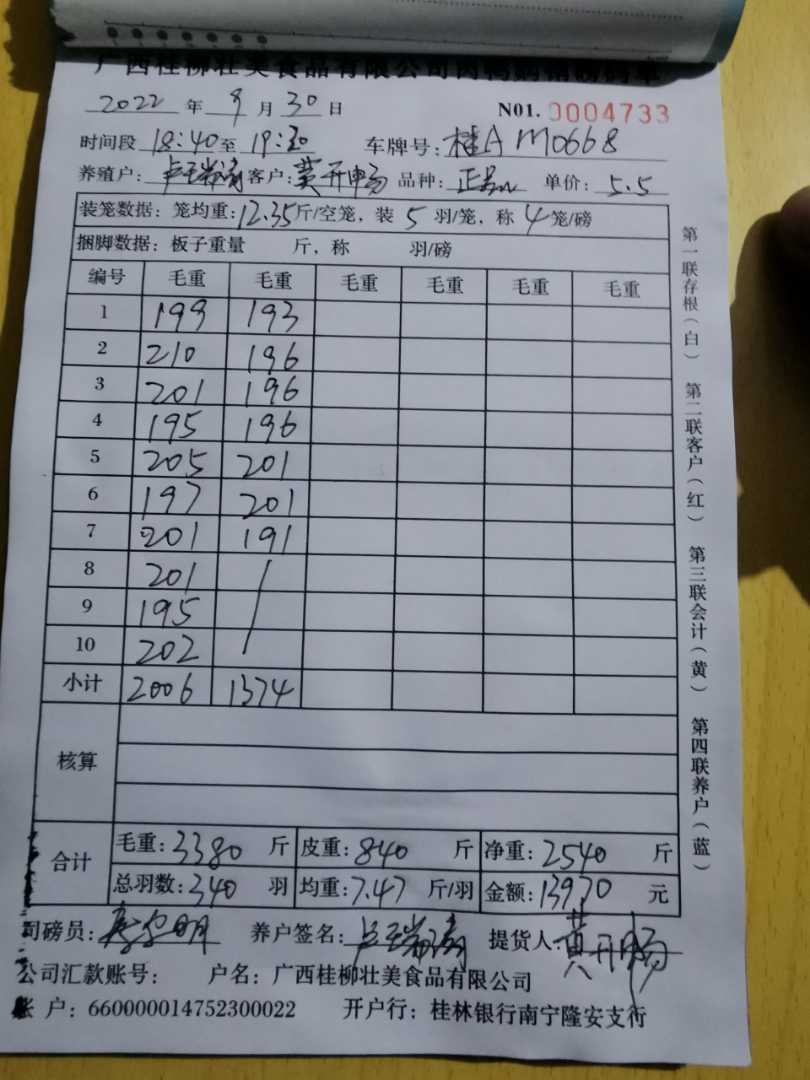 广西桂柳壮美食品有限公司肉鸭购销磅码单
2022 年 9 月 30 日 N01. 0004733
时间段 18:40 至 19:30 车牌号: 桂A M0668
养殖户: 卢 客户: 黄开畅 品种: 单价: 5.5
装笼数据: 笼均重: 12.35 斤/空笼, 装 5 羽/笼, 称 4 笼/磅
捆脚数据: 板子重量 斤, 称 羽/磅
编号 毛重 毛重 毛重 毛重 毛重 毛重
1 199 193
2 210 196
3 201 196
4 195 196
5 205 201
6 197 201
7 201 191
8 201 /
9 195
10 202
小计 2006 1374
核算
合计 毛重: 3380 斤 皮重: 840 斤 净重: 2540 斤
总羽数: 340 羽 均重: 7.47 斤/羽 金额: 13970 元
司磅员: 明 养户签名: 卢 提货人: 黄开畅
公司汇款账号: 户名: 广西桂柳壮美食品有限公司
账 户: 660000014752300022 开户行: 桂林银行南宁隆安支行
第一联存根(白) 第二联客户(红) 第三联会计(黄) 第四联养户(蓝)